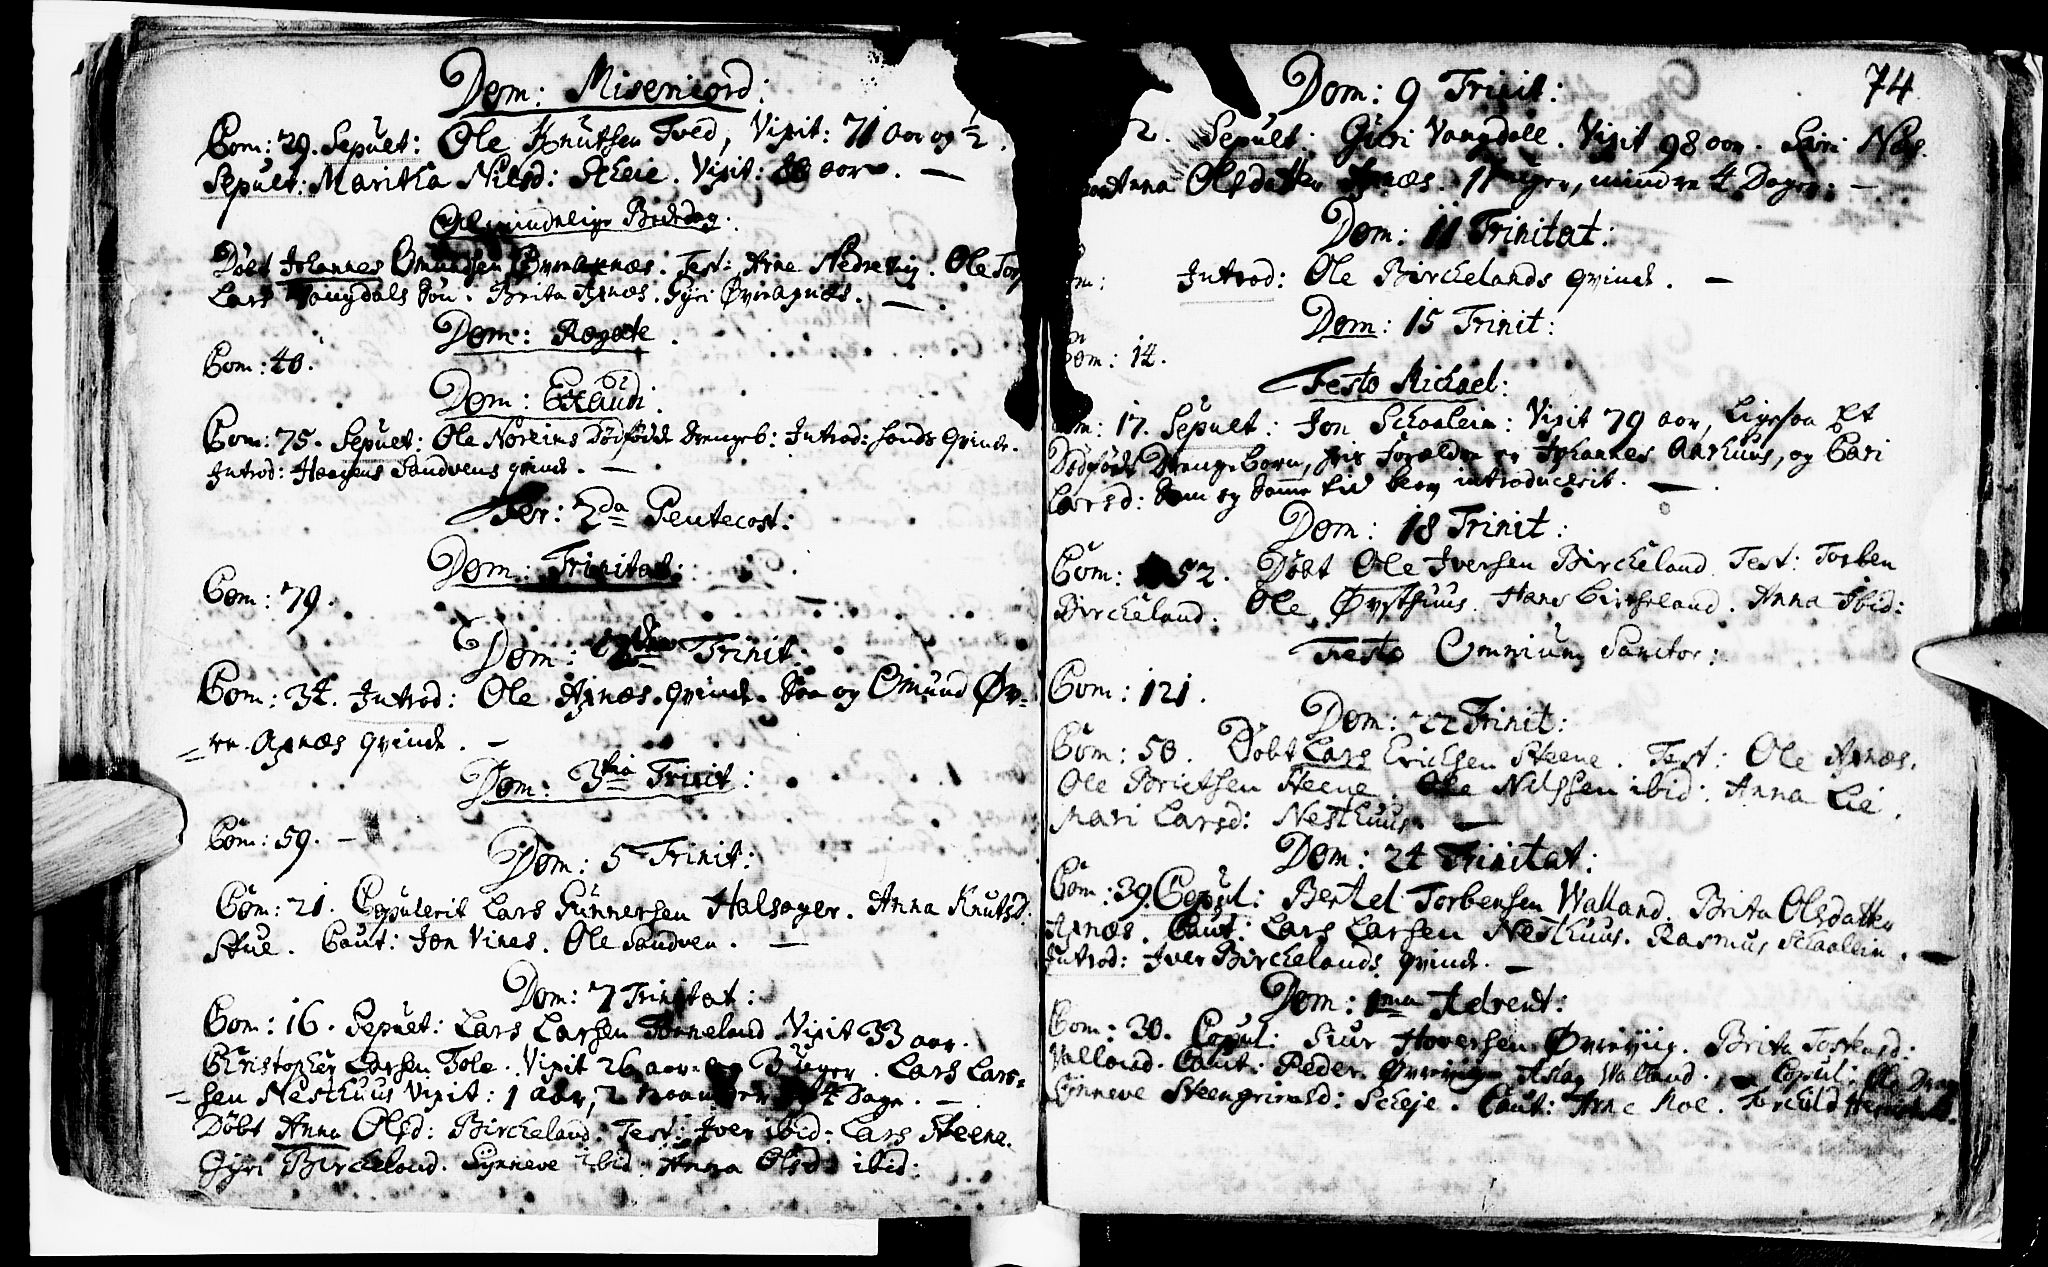 Dom: Misericord:
Com: 29. Sepult: Ole Knutsen Tved, Vixit: 71 aar og ½.
Sepult: Maritha Nilsd: Scheie. Vixit: aar. —
Almindelige Bededag.
Døbt Johannes Omundsen Øvreaxnæs. Test: Arne Nedrevig. Ole
Lars Vangdals Søn. Brita Axnæs. Gyri Øvreaxnæs. —
Dom: Rogate.
Com: 40.
Dom: Exaudi.
Com: 75. Sepult: Ole Noreims Dødfødde drengeb: Introd: hands Qvinde.
Introd: Haagens Sandvens qvinde. —
Fer: 2da Pentecost:
Dom: Trinitat:
Com: 79.
Dom: Trinit:
Com: 34. Introd: Ole Axnæs qvinde. Saa og Omund Øv=
=re Axnæs qvinde. —
Dom: 3tia Trinit:
Com: 59. —
Dom: 5 Trinit:
Com: 21. Copulerit Lars Gunnersen Halsager. Anna Knutsd:
Stue. Caut: Jon Vines. Ole Sandven. —
Dom: 7 Trinitat:
Com: 16. Sepult: Lars Larsen Vixit 33 aar.
Christopher Larsen Tole. Vixit 26 aar Uger. Lars Lars=
=sen Nesthuus Vixit: 1 aar, 2 maaneder 4 Dage. —
Døbt Anna Olsd: Birckeland. Test: Iver ibid: Lars Steene.
Gyri Birckeland. Synneve ibid: Anna Olsd: ibid:
74
Dom: 9 Trinit:
2. Sepult: Guri Vangdall. Vixit 98 aar. Siri Næs.
Anna Olsdatter Axnæs. 11 uger, mindre 4 Dager. —
Dom: 11 Trinitat:
Introd: Ole Birckelands qvinde. —
Dom: 15 Trinit:
Com: 14.
Festo Michael:
Com: 17. Sepult: Jon Schaalein: Vixit 79 aar, Ligesaa Et
Dødfødt Drenge Barn, hvis Forældre er Johannes Aarhuus, og Cari
Larsd: Som og samme tid blev introducerit. —
Dom: 18 Trinit:
Com: 52. Døbt Ole Iversen Birckeland. Test: Torben
Birckeland. Ole Øysthuus. Hans Birckeland. Anna Ibid:
Festo Omnium Sanctor:
Com: 121.
Dom: 22 Trinit:
Com: 50. Døbt Lars Ericksen Steene. Test: Ole Axnæs.
Ole Brictsen Steene. Nilssen ibid: Anna Lie.
Mari Larsd: Nesthuus. —
Dom: 24 Trinitat:
Com: 39. Copul: Bertel Torbensen Walland. Brita Olsdatter
Axnæs. Caut: Lars Larsen Nesthuus. Rasmus Schaalein. —
Introd: Iver Birckelands qvinde. —
Dom: 1ma Advent:
Com: 30. Copul: Siur Haversen Øvreviig. Brita Torbensd:
Valland. Caut: Peder Øvreviig Aslag Walland. — Copul: Ole
Synneve Steengrimsd: Scheje. Caut: Arne Moe. Torchild